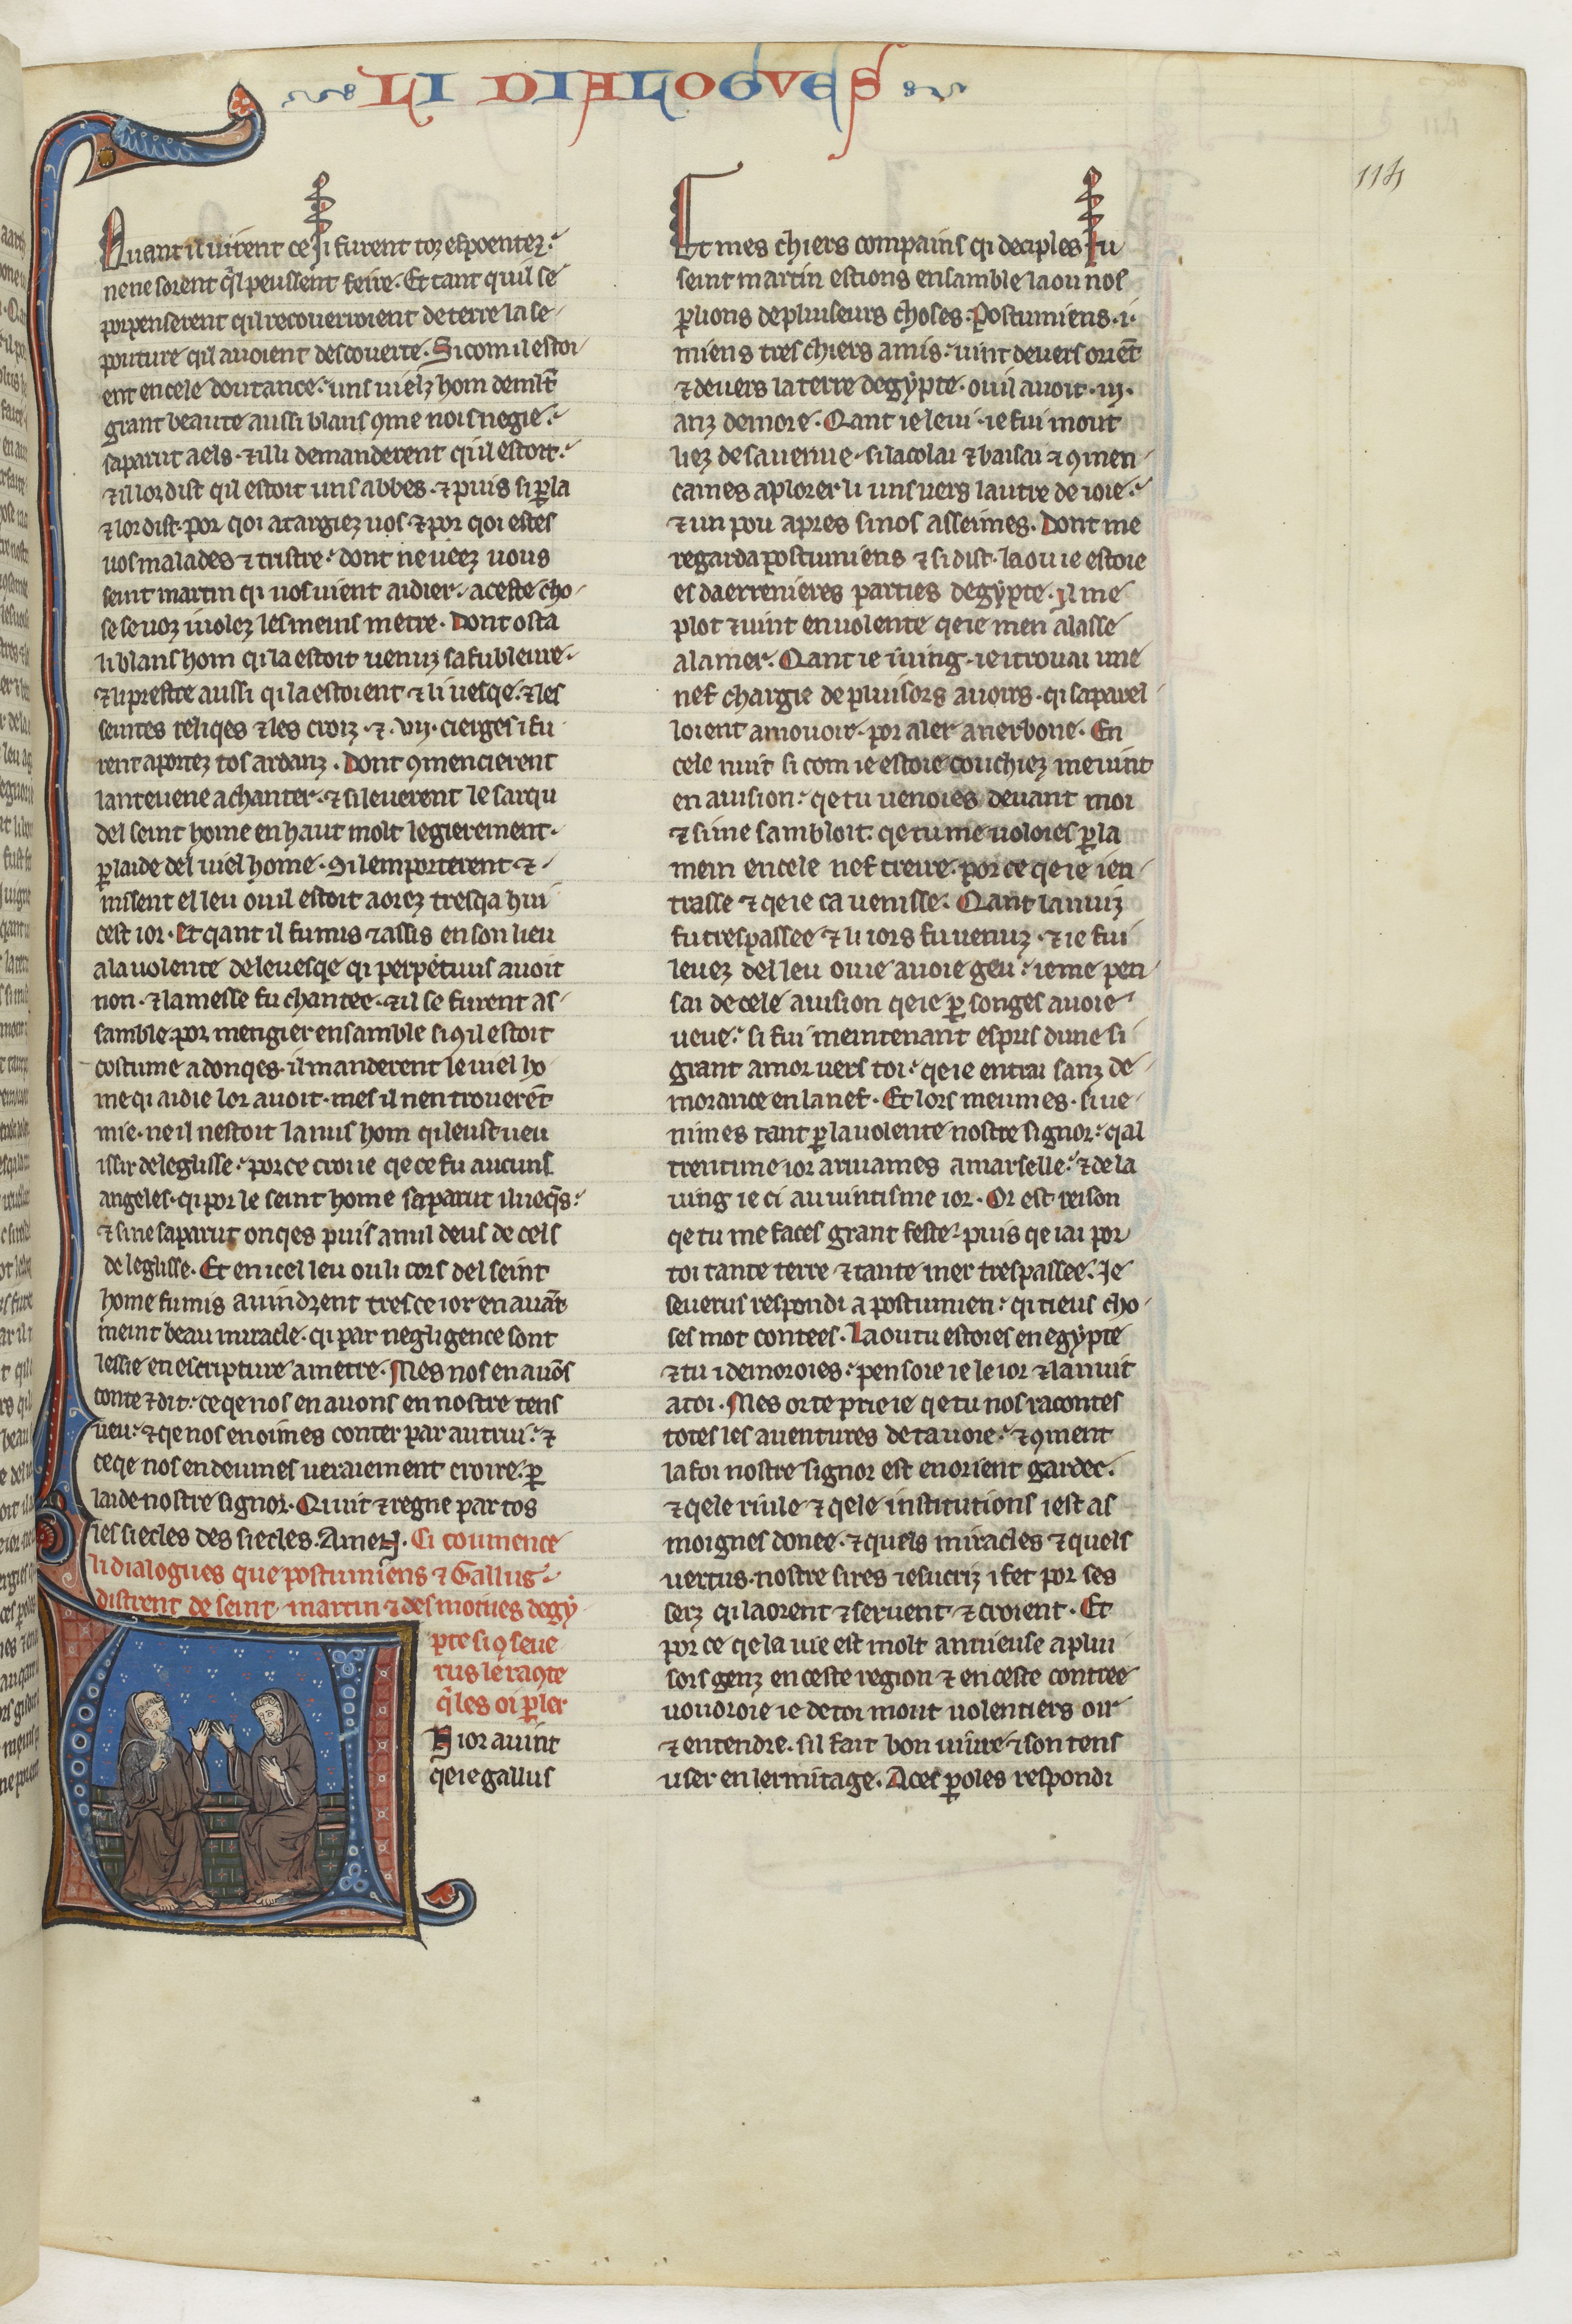 LI DIALOGVES
114
Quant il uirent ce si furent toz espoentez.
ne ne sorent q̃l peussent feire. Et tant quil se
porpenserent qil recouerroient de terre la se
pouture qil auoient descouerte. Si com il estoi
ent en cele doutance. uns uielz hom de mlt̃
grant beaute aussi blans ꝯme nois negie.
saparut a els. ⁊ il li demanderent qui lestoit.
⁊ il lor dist qil estoit uns abbes. ⁊ puis si ꝑla
⁊ lor dist. por qoi atargiez uos. ⁊ por qoi estes
uos malades ⁊ tristre. dont ne ueez uous
seint martin qi uos uient aidier. a ceste cho
se se uoz i uolez les meins metre. Dont osta
li blans hom qi la estoit uenuz sa fubleure.
⁊ li prestre aussi qi la estoient ⁊ li uesqe. ⁊ les
seintes reliqes ⁊ les croiz. ⁊ .vij. cierges i fu
rent aportez tos ardanz. Dont ꝯmencierent
lanteuene a chanter. ⁊ si leuerent le sarqu
del seint home en haut molt legierement.
ꝑ laide del uiel home. Si lemporterent ⁊
missent el leu ou il estoit aorez tresqa hui
cest ior. Et qant il fu mis ⁊ assis en son lieu
a la uolente de leuesqe qi perpetuus auoit
non. ⁊ la messe fu chantee. ⁊ il se furent as
samble por mengier ensamble si ꝯ il estoit
costume adonqes. il manderent le uiel ho
me qi aidie lor auoit. mes il nen trouerẽt
mie. ne il nestoit la nus hom qi leust ueu
issir de leglisse. por ce croi ie qe ce fu aucuns
angeles. qi por le seint home saparut ilueq̃s.
⁊ si ne saparut onqes puis a nul deus de cels
de leglisse. Et en icel leu ou li cors del seint
home fu mis auindrent tres ce ior en auãt
meint beau miracle. qi par negligence sont
lessie en escripture a metre. Mes nos en auõs
conte ⁊ dit. ce qe nos en auons en nostre tens
ueu. ⁊ qe nos en oimes conter par autrui. ⁊
ce qe nos en deumes ueraiement croire. ꝑ
laide nostre signor. Qui uit ⁊ regne par tos
les siecles des siecles. Amen. Ci coumence
li dialogues que postumiens ⁊ Gallus
distrent de seint martin ⁊ des moines degy
pte si ꝯ seue
rus le raꝯte
q̃ les oi ꝑler
N ior auint
qe ie gallus
Et mes chiers compains qi deciples fu
seint martin estions ensamble la ou nos
ꝑlions de pluiseurs choses. Postumiens .i.
miens tres chiers amis. uint deuers oriẽt
⁊ deuers la terre degypte. ou il auoit .iij.
anz demore. Qant ie le ui. ie fui mout
liez de sa uenue. si lacolai ⁊ baisai ⁊ ꝯmen
cames a plorer li uns uers lautre de ioie.
⁊ un pou apres si nos asseimes. Dont me
regarda postumiens ⁊ si dist. la ou ie estoie
es daerrenieres parties degypte. Il me
plot ⁊ uint en uolente qe ie men alasse
a la mer. Qant ie i uing. ie i trouai une
nef chargie de pluisors auoirs. qi saparel
loient a mouoir. por aler a nerbone. En
cele nuit si com ie estoie couchiez me uint
en auision. qe tu uenoies deuant moi
⁊ si me sambloit. qe tu me uoloies ꝑ la
mein en cele nef treire. por ce qe ie i en
trasse ⁊ qe ie ca uenisse. Qant la nuiz
fu trespassee ⁊ li iors fu uenuz. ⁊ ie fui
leuez del leu ou ie auoie geu. ie me pen
sai de cele auision qe ie ꝑ songes auoie
ueue. si fui meintenant espris dune si
grant amor uers toi. qe ie entrai sanz de
morance en la nef. Et lors meumes. si ue
nimes tant ꝑ la uolente nostre signor. qal
trentime ior ariuames a marselle. ⁊ de la
uing ie ci au uintisme ior. Or est reison
qe tu me faces grant feste. puis qe iai por
toi tante terre ⁊ tante mer trespassee. Ie
seuerus respondi a postumien. qi tieus cho
ses mot contees. La ou tu estoies en egypte
⁊ tu i demoroies. pensoie ie le ior ⁊ la nuit
a toi. Mes or te prie ie qe tu nos racontes
totes les auentures de ta uoie. ⁊ ꝯment
la foi nostre signor est en orient gardee.
⁊ qele riule ⁊ qele institutions i est as
moignes donee. ⁊ quels miracles ⁊ quels
uertus. nostre sires iesucriz i fet por ses
serz qi laorent ⁊ seruent ⁊ croient. Et
por ce qe la uie est molt anuieuse a plui
sors genz en ceste region ⁊ en ceste contree
uoudroie ie de toi mout uolentiers oir
⁊ entendre. sil fait bon uiure ⁊ son tens
user en lermitage. A ces ꝑoles respondi